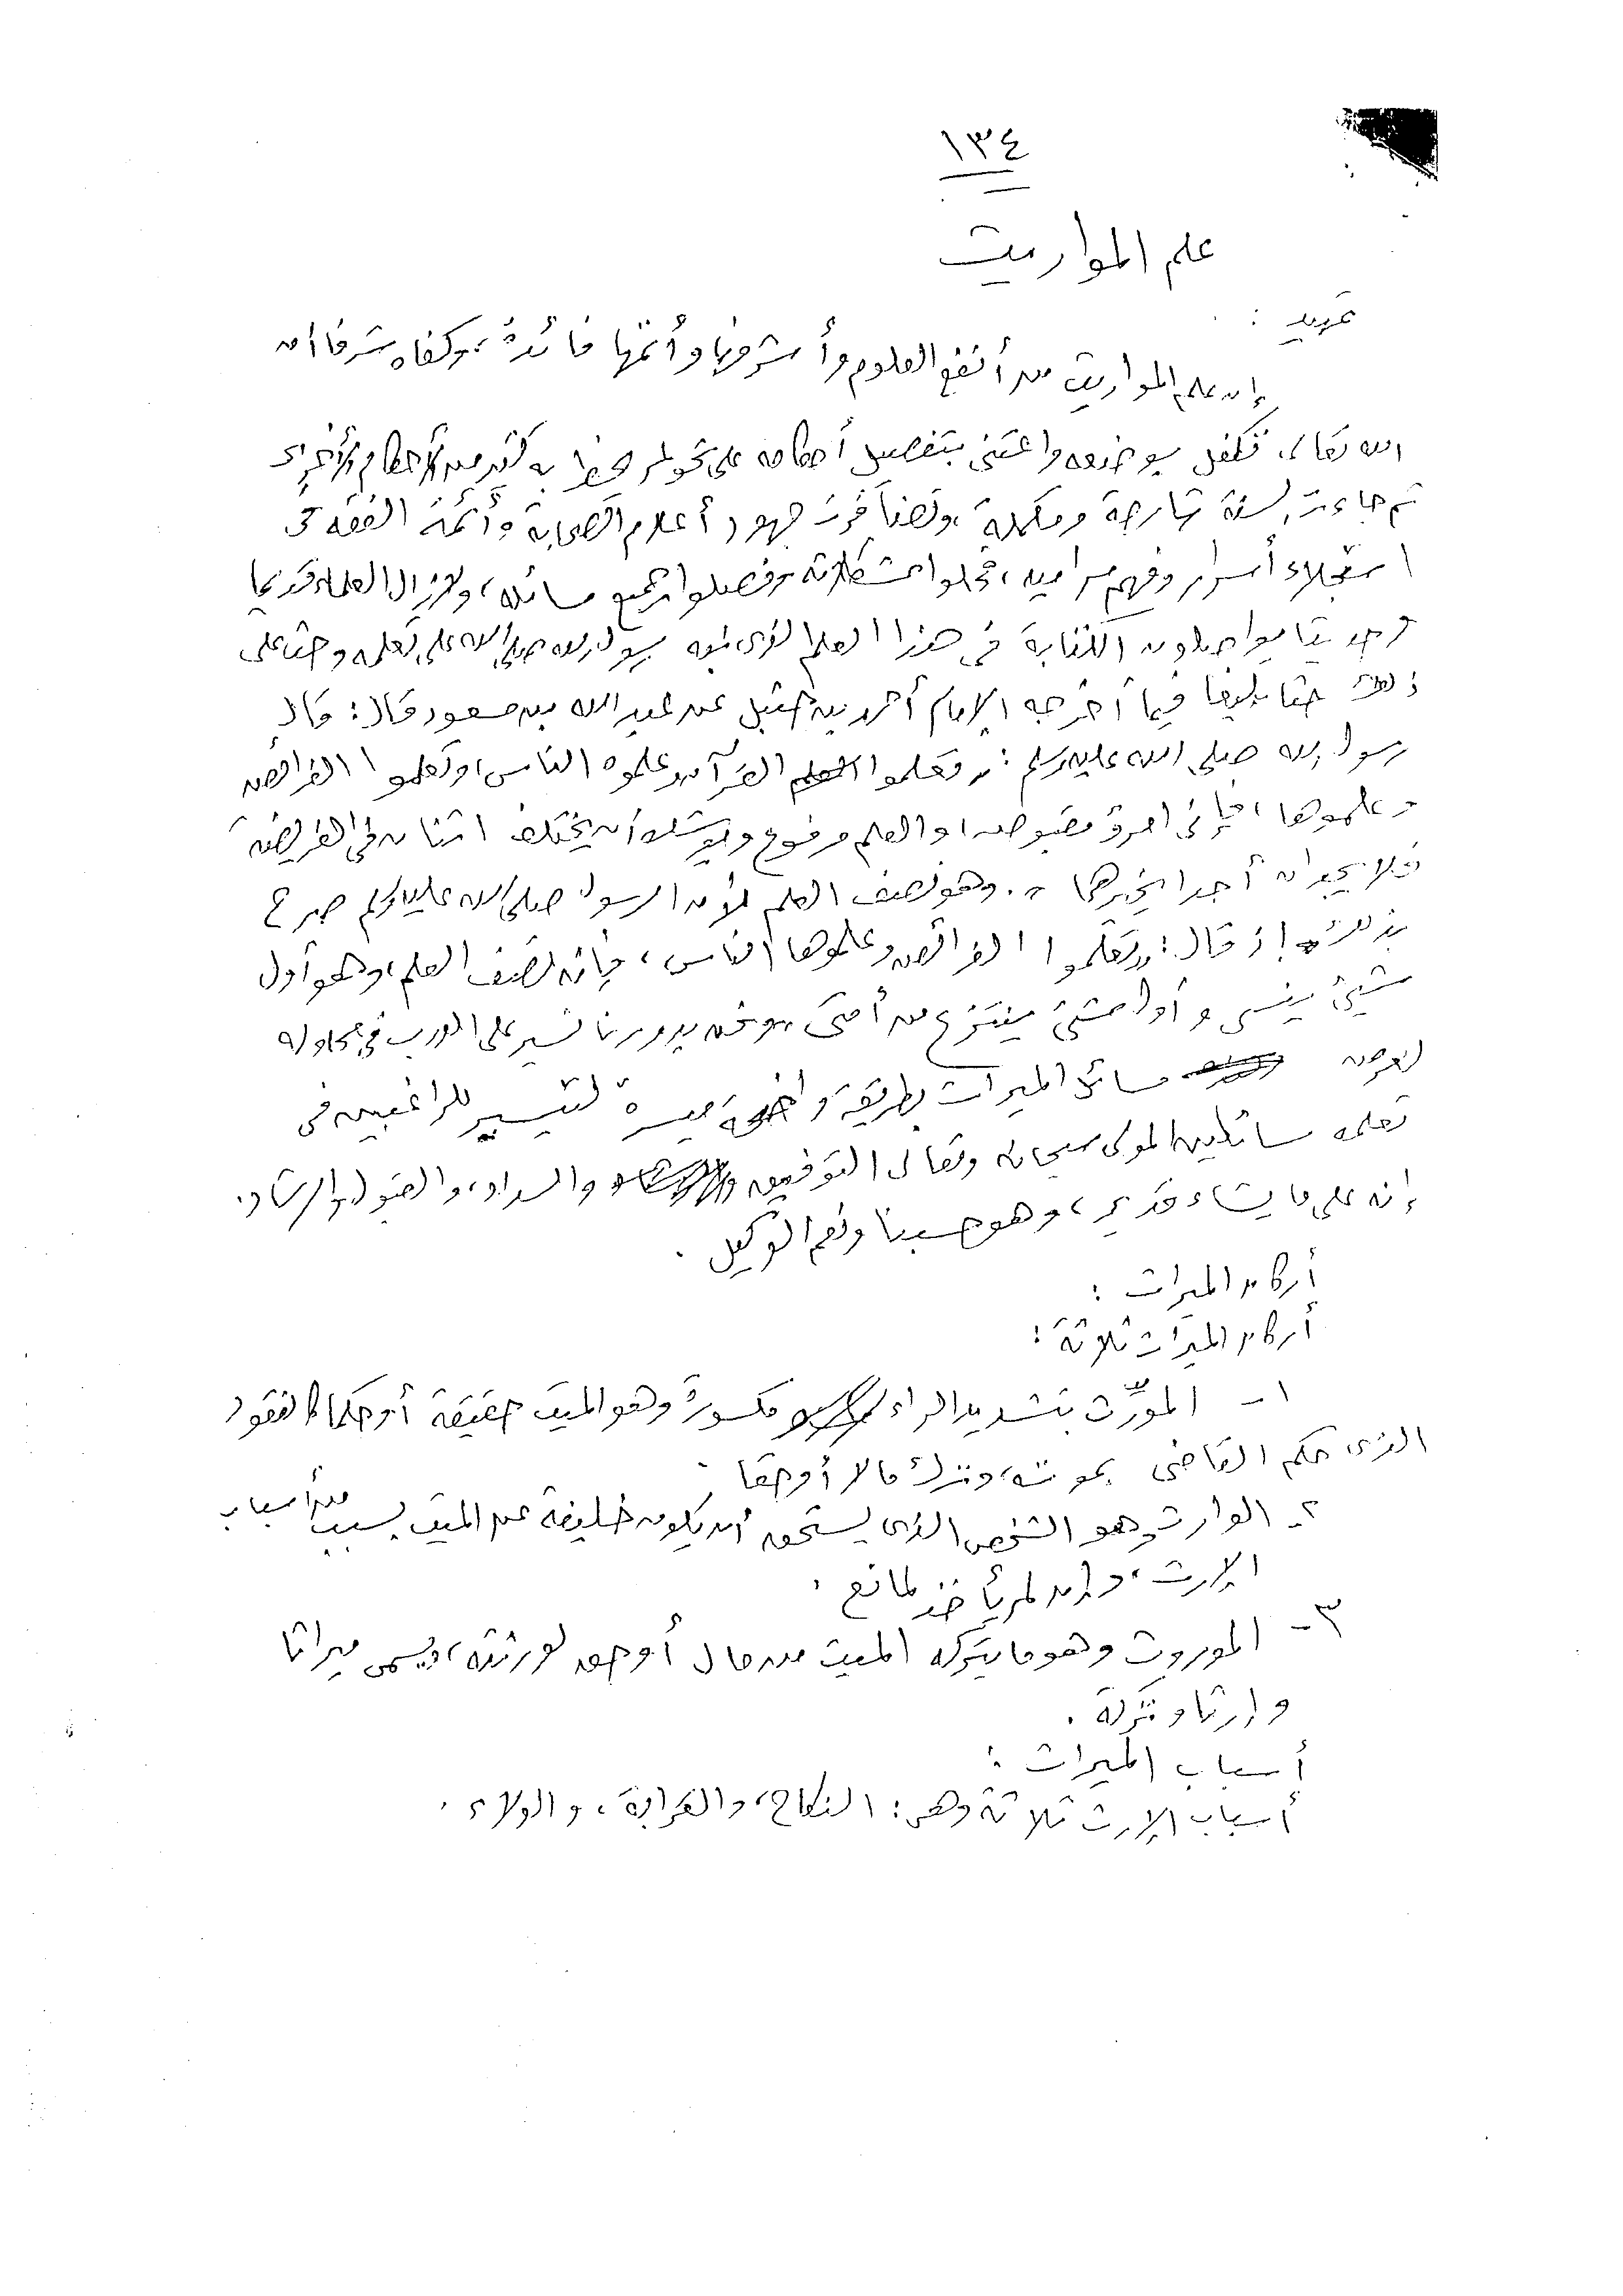 ١٣٤
علم المواريث
تمهيد :
إن علم المواريث من أنفع العلوم وأشرفها وأتمها فائدة، وكفاه شرفا أن
الله تعالى تكفل بوضعه واعتنى بتفصيل أحكامه على نحو لم يحظ به كثير من الأحكام الأخرى
ثم جاءت السنة شارحة ومكملة، وتضافرت جهود أعلام الصحابة وأئمة الفقه فى
استجلاء أسراره وفهم مراميه، فحلوا مشكلاته وفصلوا جميع مسائله، ولا يزال العلماء قديما
وحديثا يواصلون الكتابة فى هذا العلم الذى نبه رسول الله صلى الله على تعلمه وحث على
ذلك حثا بليغا فيما أخرجه الإمام أحمد بن حنبل عن عبد الله بن مسعود قال: قال
رسول الله صلى الله عليه وسلم: "تعلموا القرآن وعلموه الناس، وتعلموا الفرائض
وعلموها، فإنى امرؤ مقبوض، والعلم مرفوع ويوشك أن يختلف اثنان فى الفريضة
فلا يجدان أحدا يخبرهما". وهو نصف العلم لأن الرسول صلى الله عليه وسلم صرح
بذلك إذ قال: "تعلموا الفرائض وعلموها الناس، فإنه نصف العلم، وهو أول
شيئ ينسى وأول شيئ ينتزع من أمتى، ونحن بدورنا نسير على الدرب فى محاولة
لعرض مسائل الميراث بطريقة واضحة ميسرة لتيسير للراغبين فى
تعلمه سائلين المولى سبحانه وتعالى التوفيق والسداد، والقبول والرشاد.
إنه على ما يشاء قدير، وهو حسبنا ونعم الوكيل .
أركان الميراث :
أركان الميراث ثلاثة :
١ - المورِّث بتشديد الراء مكسورة وهو الميت حقيقة أو حكما كالمفقود
الذى حكم القاضى بموته، وترك مالا أو حقا .
٢ - الوارث وهو الشخص الذى يستحق أن يكون خليفة عن الميت بسبب من أسباب
الإرث، وإن لم يأخذ لمانع .
٣ - الموروث وهو ما يتركه الميت من مال أو حق لورثته، ويسمى ميراثا
وإرثا وتركة .
أسباب الميراث :
أسباب الإرث ثلاثة وهى: النكاح، والقرابة، والولاء .